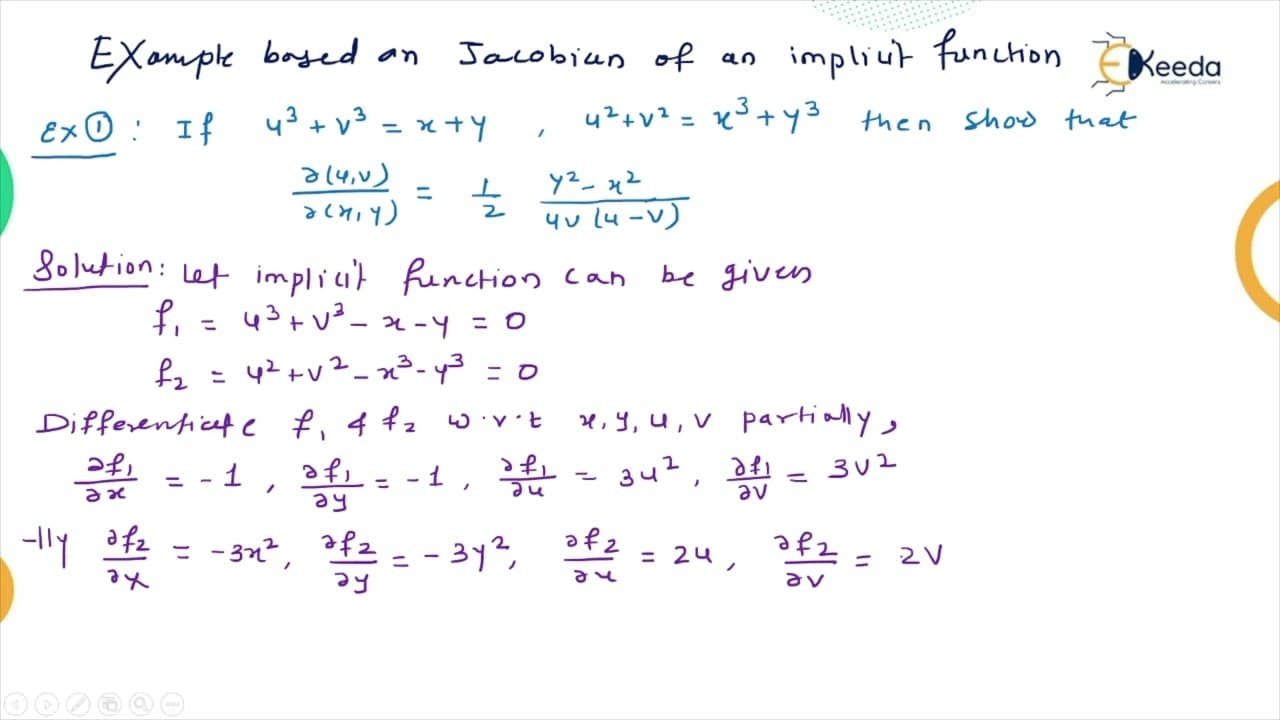 Example based on Jacobian of an implicit function
EKeeda
Accelerating Careers
Ex ①: If u³ + v³ = x + y , u² + v² = x³ + y³ then show that
∂(u,v)/∂(x,y) = 1/2 (y² - x²)/(uv(u-v))
Solution: Let implicit function can be given
f₁ = u³ + v³ - x - y = 0
f₂ = u² + v² - x³ - y³ = 0
Differentiate f₁ & f₂ w.r.t x, y, u, v partially,
∂f₁/∂x = -1 , ∂f₁/∂y = -1 , ∂f₁/∂u = 3u² , ∂f₁/∂v = 3v²
-lly ∂f₂/∂x = -3x², ∂f₂/∂y = -3y², ∂f₂/∂u = 2u , ∂f₂/∂v = 2v